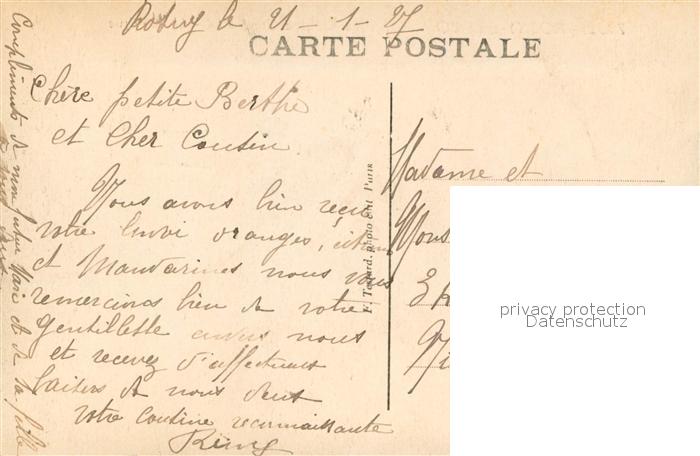 le 21-1-27
CARTE POSTALE
Chère petite Berthe
et Cher Cousin
Nous avons bien reçu
votre envoi oranges, citrons
et Mandarines nous vous
remercions bien de votre
gentillesse envers nous
et recevez d'affectueux
baisers de nous deux
votre cousine reconnaissante
Compliments de mon
et de sa fille
F. Testard, photo édit Paris
Madame et
privacy protection
Datenschutz